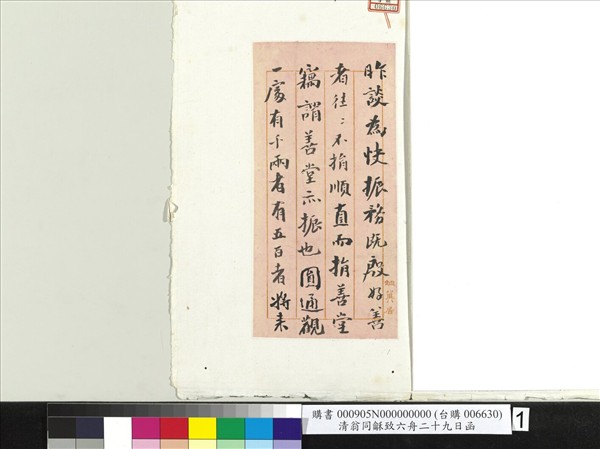 昨談為快振務既殷好善
者往〻不捐順直而捐善堂
竊謂善堂亦振也圓通觀
一處有千兩者有五百者將来
購書 000905N000000000 (台購 006630)
清翁同龢致六舟二十九日函
1